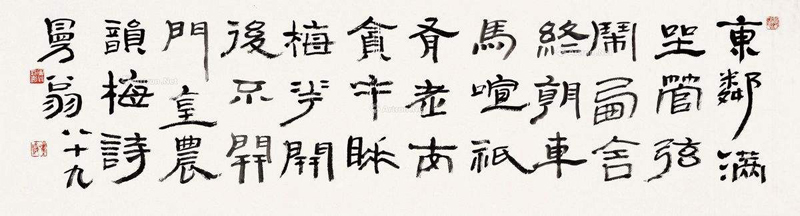 東鄰滿
坐管弦
鬧西舍
終朝車
馬喧祇
有老
貪午睡
梅花開
後不開
門 農
韻梅詩
曼翁八十九